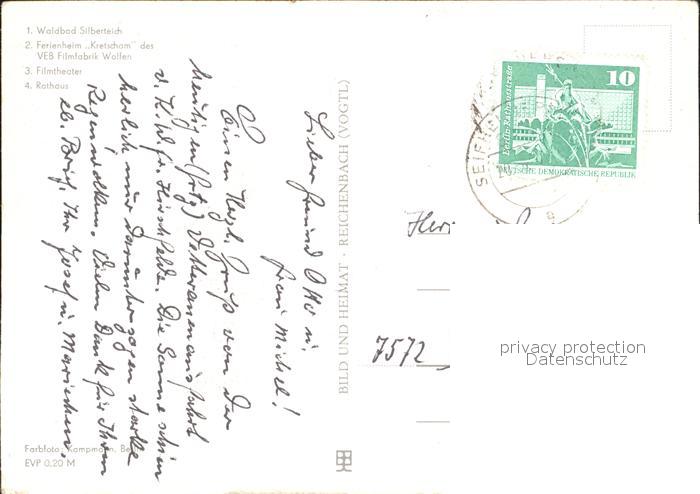 1. Waldbad Silberteich
2. Ferienheim „Kretscham" des
VEB Filmfabrik Wolfen
3. Filmtheater
4. Rathaus
Lieber Freund Otto u.
Frau Michel!
Einen Herzl. Gruß von der
heutigen
Die Sonne schien
herrlich nur darunter zogen starke
Regenwolken. Vielen Dank für Ihren
lb. Brief. Ihr Josef u. Mariechen.
Farbfoto: Kampmann, Berlin
EVP 0,20 M
BILD UND HEIMAT · REICHENBACH (VOGTL)
Berlin-Rathausstraße
10
DEUTSCHE DEMOKRATISCHE REPUBLIK
SEIF
a
7572
privacy protection
Datenschutz